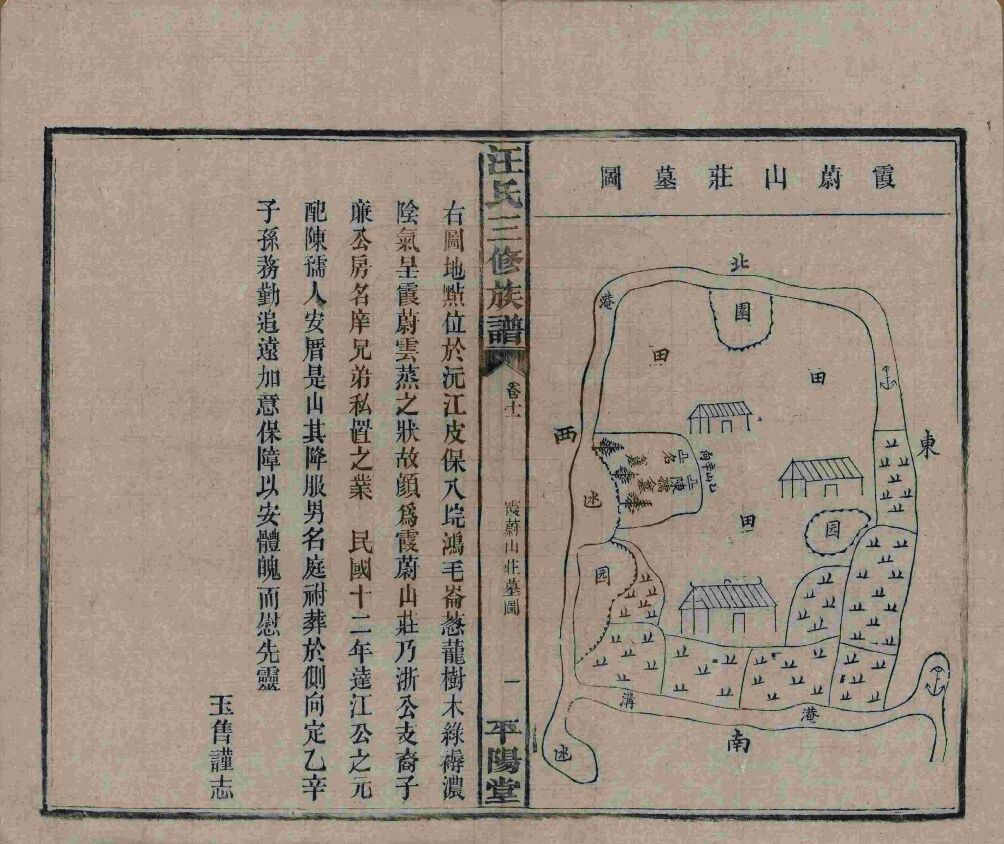 霞蔚山莊墓圖
北
港
園
田
田
東
西
乙山辛向
山
名
陳孺
墓
塋
田
園
述
园
溝
港
南
述
汪氏三修族譜
卷十一
霞蔚山莊墓圖
一
平陽堂
右圖地點位於沅江皮保八垸鴻毛崙葱蘢樹木綠褥濃
陰氣呈霞蔚雲蒸之狀故顏爲霞蔚山莊乃浙公支裔子
廉公房名庠兄弟私置之業 民國十二年達江公之元
配陳孺人安厝是山其降服男名庭祔葬於側向定乙辛
子孫務勤追遠加意保障以安體魄而慰先靈
玉售謹志